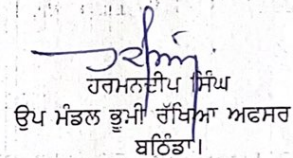 ਹਰਮਨਦੀਪ ਸਿੰਘ
ਉਪ ਮੰਡਲ ਭੂਮੀ ਰੱਖਿਆ ਅਫਸਰ
ਬਠਿੰਡਾ।